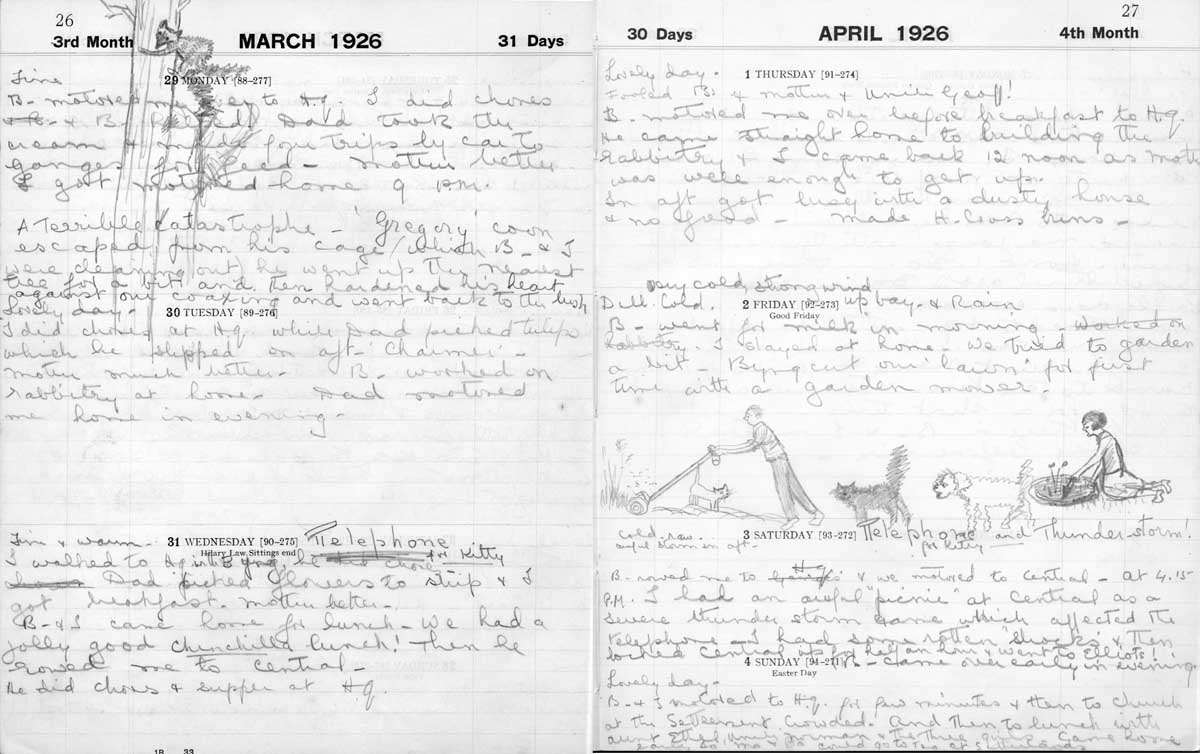 26
3rd Month MARCH 1926 31 Days
29 MONDAY [88-277]
Fine
B- motored me to H.Q. I did chores
& B Dad took the
cream & made four trips by car to
Ganges for feed - mother better
I got motored home 9 p.m.
A Terrible Catastrophe - 'Gregory' coon
escaped from his cage (which B- & I
were cleaning out) he went up the nearest
tree for a bit and then hardened his heart
against our coaxing and went back to the bush
Lovely day-
30 TUESDAY [89-276]
I did chores at H.Q. while Dad picked tulips
which he shipped on aft- 'Charmer' -
mother much better- B- worked on
rabbitry at home- Dad motored
me home in evening-
Fine & warm-
31 WEDNESDAY [90-275]
Hilary Law Sittings end
Telephone
for Kitty
I walked to Hq with Byng, he did chores
Dad picked flowers to ship & I
got breakfast. mother better-
B- & I came home for lunch- we had a
jolly good chinchilla lunch! Then he
rowed me to central
He did chores & supper at Hq.
1B 33
27
30 Days APRIL 1926 4th Month
Lovely day.
1 THURSDAY [91-274]
Fooled B: & mother & Uncle Geoff!
B- motored me over before breakfast to H.Q.
He came straight home to building the
rabbitry & I came back 12 noon as moth
was well enough to get up.
In aft got busy with a dusty house
& no feed - made H-Cross buns -
very cold, strong wind
Dull. Cold.
2 FRIDAY [92-273]
up bay - & Rain
Good Friday
B- went for milk in morning - worked on
rabbitry. I stayed at home. We tried to garden
a bit - Byng cut our 'lawn' for first
time with a garden mower
cold-raw.
awful storm in aft-
3 SATURDAY [93-272]
Telephone and Thunderstorm!
for Kitty
B- rowed me to Hq & we motored to Central - at 4.15
P.M. I had an awful "picnic" at Central as a
severe thunder storm came which affected the
telephone - I had some rotten 'shocks' & then
locked Central up for half an hour & went to Elliots!
4 SUNDAY [94-271]
B- came over early in evening.
Easter Day
Lovely day-
B- & I motored to H.Q. for few minutes & then to church
at the Settlement. Crowded. And then to lunch with
aunt Ethel, uncle Norman & the three girls. Came home
early so ma & pa could go to tea